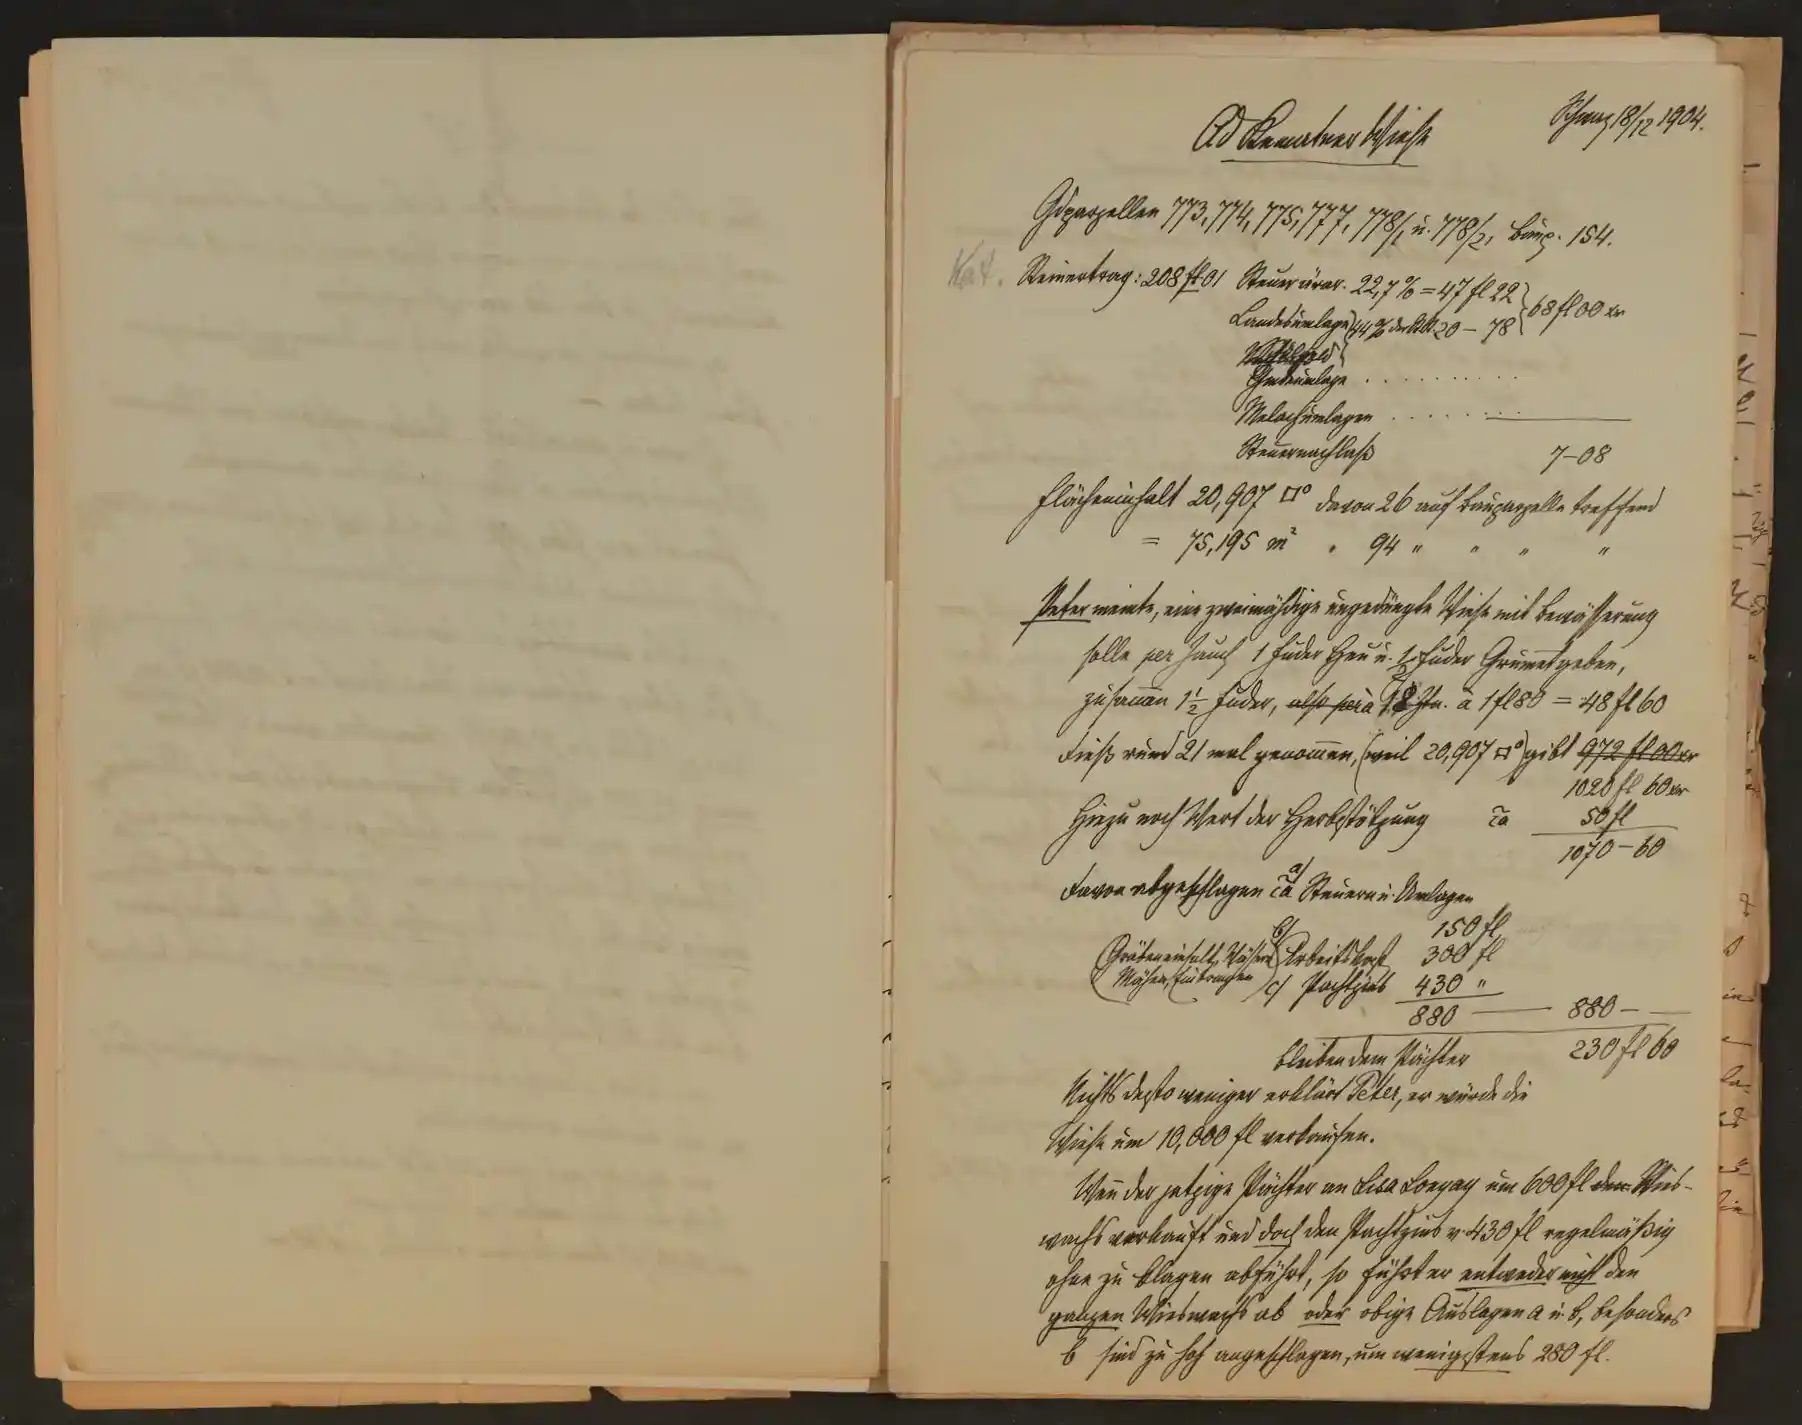 Schwaz 18/12 1904.
Ad Kematner Wiese
Gdparzellen 773, 774, 775, 777, 778/1 u. 778/2, Baup. 154.
Kat. Reinertrag: 208 fl 01 Steuer ärar. 22,7 % = 47 fl 22
Landesumlage 44 % 20 – 78 } 68 fl 00 xr
Gmdeumlage . . . . . . . . . .
Melachumlagen . . . . . . .
Steuernachlaß 7–08
Flächeninhalt 20,907 □° davon 26 auf Bauparzelle treffend
= 75,195 m² " 94 " " " "
Peter meinte, eine zweimähdige ungedüngte Wiese mit Bewässerung
solle per Jauch 1 Fuder Heu u. 1/2 Fuder Grummet geben,
zusammen 1 1/2 Fuder, also à 1 fl 80 = 48 fl 60
Dieß rund 21 mal genommen, (weil 20,907 □°) gibt 972 fl 00 xr
1020 fl 60 xr
Hiezu noch Wert der Herbstätzung ca 50 fl
1070–60
Davon abgeschlagen ca a/ Steuern u. Umlagen
150 fl
(Gräbeneinhalt, Wässern b/ Arbeitskost 300 fl
Mähen, Einbringen) c/ Pachtzins 430 "
880 — 880 –
bleiben dem Pächter 230 fl 60
Nichts desto weniger erklärt Peter, er würde die
Wiese um 10,000 fl verkaufen.
Wenn der jetzige Pächter an Lisa um 600 fl den Wies-
wachs verkauft und doch den Pachtzins v. 430 fl regelmäßig
ohne zu klagen abführt, so führt er entweder nicht den
ganzen Wieswachs ab oder obige Auslagen a u. b, besonders
b sind zu hoch angeschlagen, um wenigstens 280 fl.